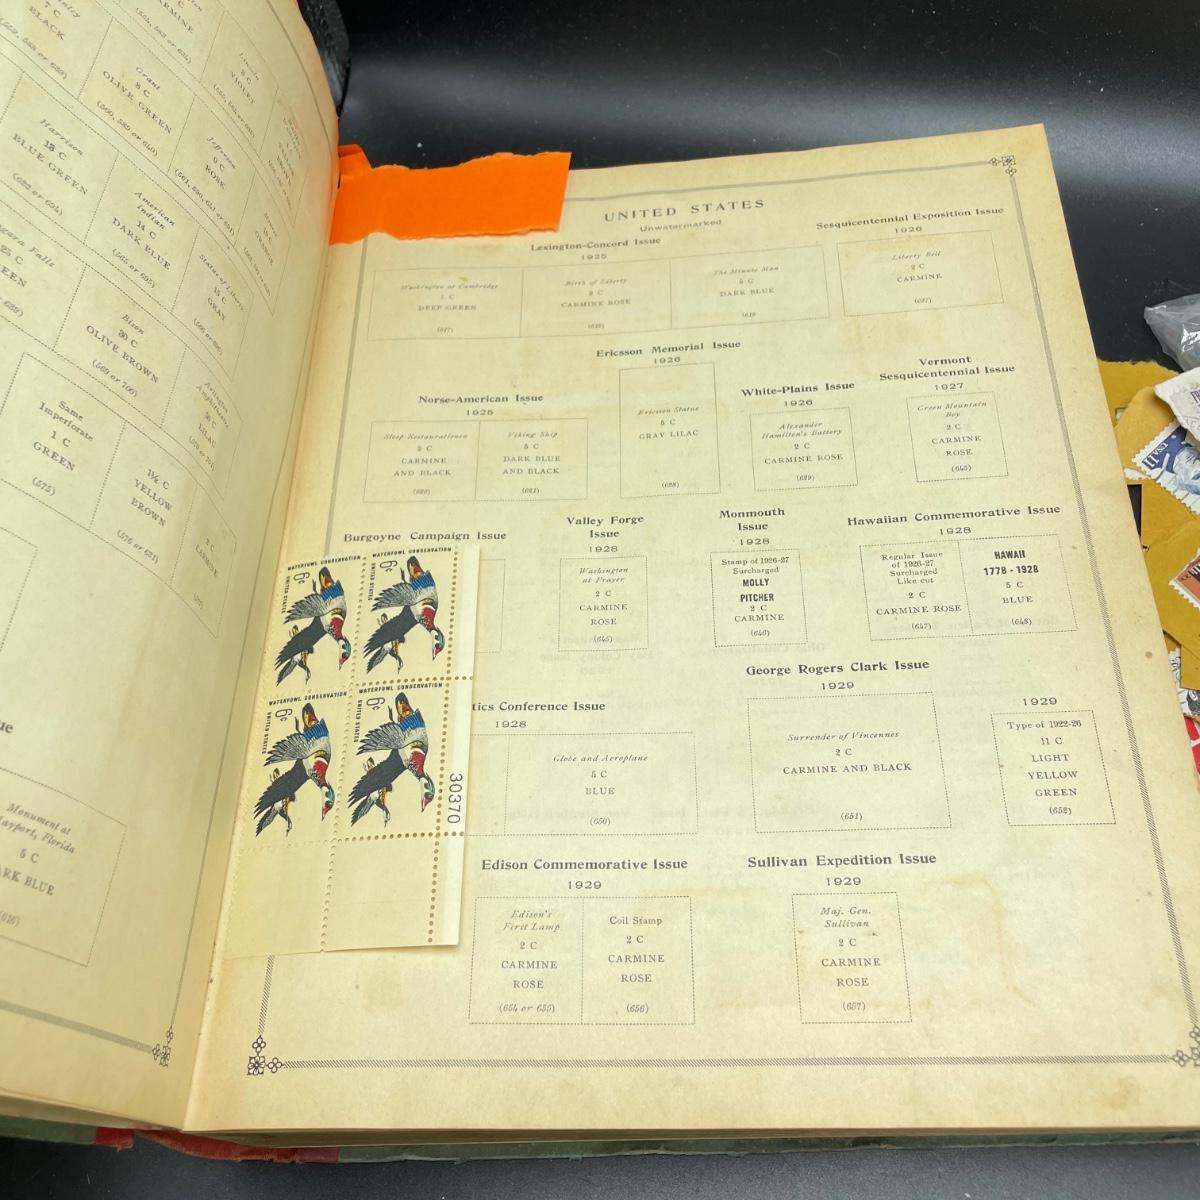 7 C
BLACK
(559, 588 or 639)
CARMINE
(554, 583 or 634)
Grant
8 C
OLIVE GREEN
(560, 589 or 640)
Lincoln
3 C
VIOLET
(555, 584 or 635)
Harrison
13 C
BLUE GREEN
(622 or 694)
Jefferson
9 C
ROSE
(561, 590, 641 or 691)
ORANGE
American
Indian
14 C
DARK BLUE
(565 or 695)
Falls
25 C
Statue of Liberty
15 C
GRAY
(566 or 696)
Bison
30 C
OLIVE BROWN
(569 or 700)
Arlington
Amphitheatre
50 C
LILAC
(570 or 701)
Same
Imperforate
1 C
GREEN
(575)
1½ C
YELLOW
BROWN
(576 or 631)
2 C
CARMINE
(577)
Monument at
Mayport, Florida
5 C
DARK BLUE
(616)
UNITED STATES
Unwatermarked
Lexington-Concord Issue
1925
Washington at Cambridge
1 C
DEEP GREEN
(617)
Birth of Liberty
2 C
CARMINE ROSE
(618)
The Minute Man
5 C
DARK BLUE
(619)
Sesquicentennial Exposition Issue
1926
Liberty Bell
2 C
CARMINE
(627)
Norse-American Issue
1925
Sloop Restaurationen
2 C
CARMINE
AND BLACK
(620)
Viking Ship
5 C
DARK BLUE
AND BLACK
(621)
Ericsson Memorial Issue
1926
Ericsson Statue
5 C
GRAY LILAC
(628)
White-Plains Issue
1926
Alexander
Hamilton's Battery
2 C
CARMINE ROSE
(629)
Vermont
Sesquicentennial Issue
1927
Green Mountain
Boy
2 C
CARMINE
ROSE
(643)
Burgoyne Campaign Issue
Valley Forge
Issue
1928
Washington
at Prayer
2 C
CARMINE
ROSE
(645)
Monmouth
Issue
1928
Stamp of 1926-27
Surcharged
MOLLY
PITCHER
2 C
CARMINE
(646)
Hawaiian Commemorative Issue
1928
Regular Issue
of 1926-27
Surcharged
Like cut
2 C
CARMINE ROSE
(647)
HAWAII
1778 - 1928
5 C
BLUE
(648)
WATERFOWL CONSERVATION
6c
UNITED STATES
WATERFOWL CONSERVATION
6c
UNITED STATES
WATERFOWL CONSERVATION
6c
UNITED STATES
WATERFOWL CONSERVATION
6c
UNITED STATES
30370
tics Conference Issue
1928
Globe and Aeroplane
5 C
BLUE
(650)
George Rogers Clark Issue
1929
Surrender of Vincennes
2 C
CARMINE AND BLACK
(651)
1929
Type of 1922-26
11 C
LIGHT
YELLOW
GREEN
(652)
Edison Commemorative Issue
1929
Edison's
First Lamp
2 C
CARMINE
ROSE
(654 or 655)
Coil Stamp
2 C
CARMINE
ROSE
(656)
Sullivan Expedition Issue
1929
Maj. Gen.
Sullivan
2 C
CARMINE
ROSE
(657)